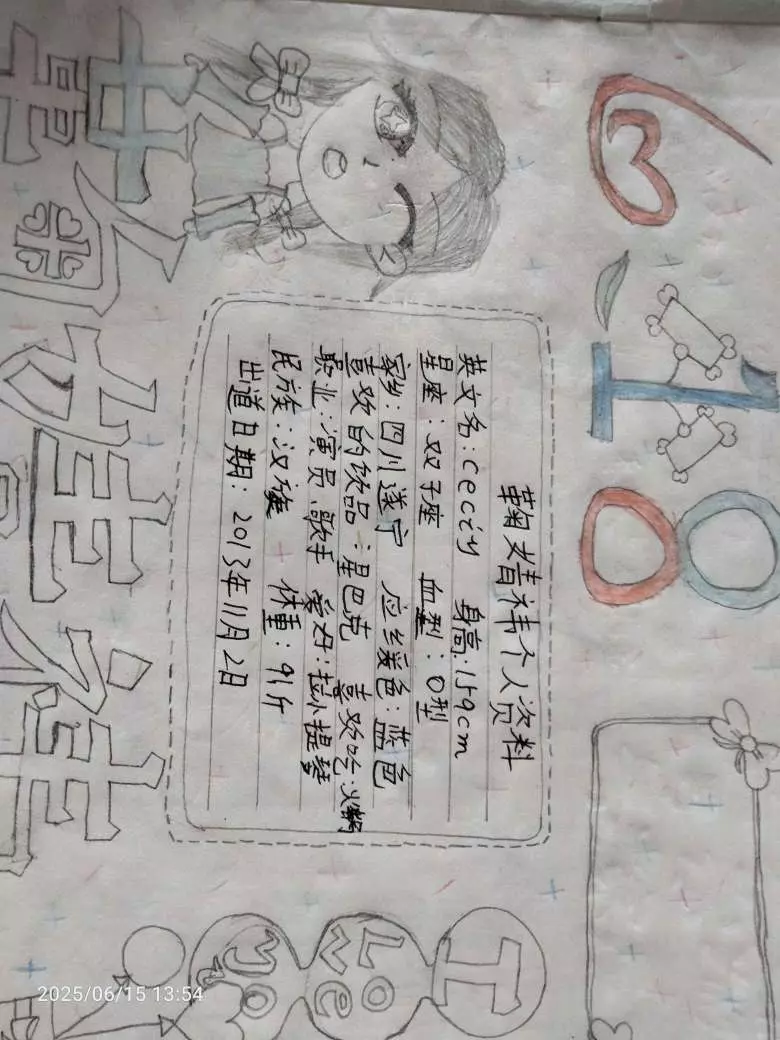 618
鞠婧祎
鞠婧祎个人资料
英文名:cecily 身高:159cm
星座:双子座 血型:O型
家乡:四川遂宁 应缓色:蓝色
喜欢的饮品:星巴克 喜欢吃:火锅
职业:演员、歌手 爱好:拉小提琴
民族:汉族 体重:91斤
出道日期:2013年11月2日
I
Love
2025/06/15 13:54